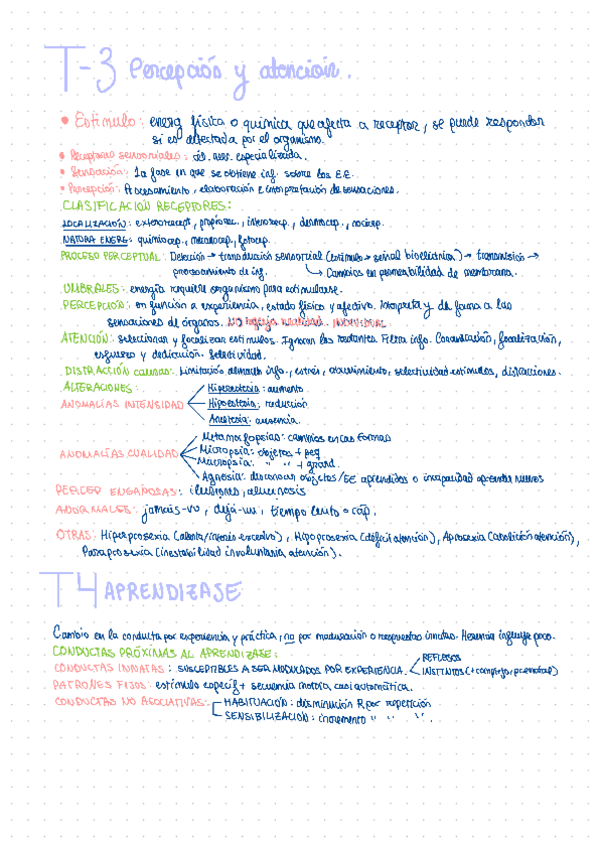 T-3 Percepción y atención.
• Estímulo: energ física o química que afecta a receptor, se puede responder
si es detectada por el organismo.
• Receptores sensoriales: cél. nerv. especializada.
• Sensación: la fase en que se obtiene inf. sobre los E.E.
• Percepción: Procesamiento, elaboración e interpretación de sensaciones.
CLASIFICACIÓN RECEPTORES:
LOCALIZACIÓN: exterorecept, propiorec., interocep., dermocep., nocicep.
NATURA ENERG: quimiocep., mecanocep., fotocep.
PROCESO PERCEPTUAL: Detección → transducción sensorial (estímulo → señal bioeléctrica) → transmisión →
procesamiento de inf. ↳ Cambios en permeabilidad de membrana.
UMBRALES: energía requiere organismo para estimularse.
PERCEPCIÓN: en función a experiencia, estado físico y afectivo. Interpreta y da forma a las
sensaciones de órganos. NO refleja realidad. INDIVIDUAL
ATENCIÓN: seleccionar y focalizar estímulos. Ignorar los restantes. Filtra info. Concentración, focalización,
esfuerzo y dedicación. Selectividad.
DISTRACCIÓN causas: Limitación almacén info., estrés, aburrimiento, selectividad estímulos, distracciones.
ALTERACIONES:
ANOMALÍAS INTENSIDAD Hiperestesia: aumento.
Hipoestesia: reducción
Anestesia: ausencia.
ANOMALÍAS CUALIDAD Metamorfopsias: cambios en las formas
Micropsia: objetos + peq
Macropsia: " " + grand.
Agnosia: desconocer objetos/EE aprendidos o incapacidad aprender nuevos
PERCEP ENGAÑOSAS: ilusiones, alucinosis
ANORMALES: jamais-vu, dejá-vu, tiempo lento o ráp.
OTRAS: Hiperprosexia (alerta/interés excesivo), Hipoprosexia (déficit atención), Aprosexia (abolición atención),
Paraprosexia (inestabilidad involuntaria atención).
T4 APRENDIZAJE
Cambio en la conducta por experiencia y práctica, no por maduración o respuestas innatas. Herencia influye poco.
CONDUCTAS PRÓXIMAS AL APRENDIZAJE:
CONDUCTAS INNATAS: SUSCEPTIBLES A SER MODULADOS POR EXPERIENCIA. REFLEJOS
INSTINTOS (+complejo, prenatal)
PATRONES FIJOS: estímulo específ + secuencia motora casi automática.
CONDUCTAS NO ASOCIATIVAS: HABITUACIÓN: disminución R por repetición
SENSIBILIZACIÓN: incremento " " " .